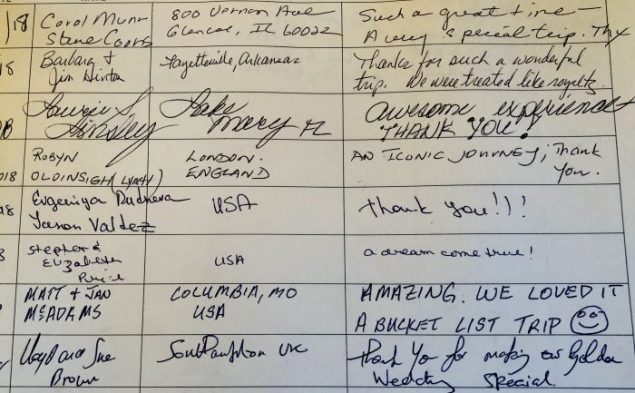 18 Carol Munn 800 Vernon Ave Such a great time -
Steve Coors Glencoe, IL 60022 A very special trip. Thx
18 Barbara & Fayetteville, Arkansas Thanks for such a wonderful
Jim Hinton trip. We were treated like royalty.
Laurie S Lake awesome experience
Linsley Mary FL THANK YOU!
ROBYN LONDON. AN ICONIC JOURNEY, Thank
018 OLDINSIGH (LYNCH) ENGLAND You.
18 Evgeniya USA Thank you!!!
Jason Valdez
Stephen & USA a dream come true!
Elizabeth
Price
MATT & JAN COLUMBIA, MO AMAZING. WE LOVED IT
McADAMS USA A BUCKET LIST TRIP
Lloyd and Sue Southampton UK Thank You for making our Golden
Brown Wedding Special.